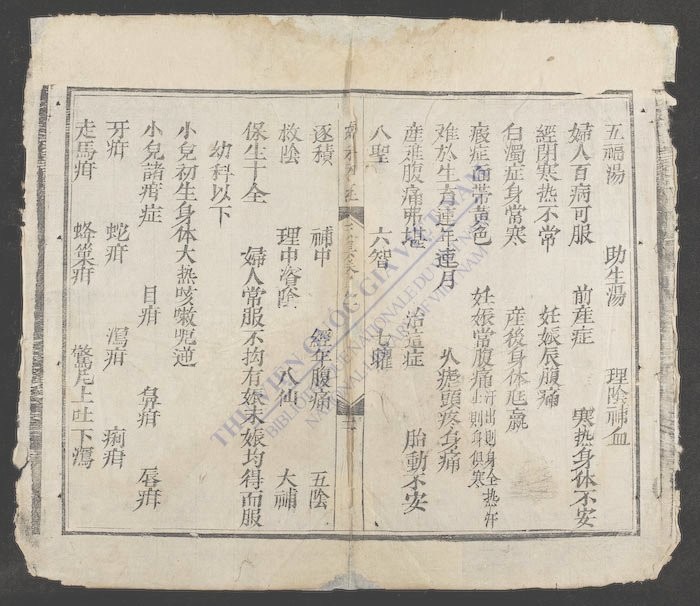 五福湯 助生湯 理陰補血
婦人百病可服 前産症 寒热身体不安
經閉寒热不常 妊娠辰腹痛
白濁症身常寒 産後身体尫羸
瘕症面帯黄色 妊娠常腹痛 汗出則身全热汗止則身俱寒
难於生育連年連月 久瘧頭疼身痛
産难腹痛弗堪 治這症 胎動不安
八聖 六智 七曜
逐積 補中 經年腹痛 五陰
救陰 理中滘陰 八仙 大補
保生十全 婦人常服不拘有娠未娠均得而服
幼科以下
小兒初生身体大热咳嗽呃逆
小兒諸疳症 目疳 鼻疳 唇疳
牙疳 蛇疳 瀉疳 痢疳
走馬疳 蜂窠疳 驚疳上吐下瀉
THƯ VIỆN QUỐC GIA VIỆT NAM
BIBLIOTHÈQUE NATIONALE DU VIETNAM
NATIONAL LIBRARY OF VIETNAM